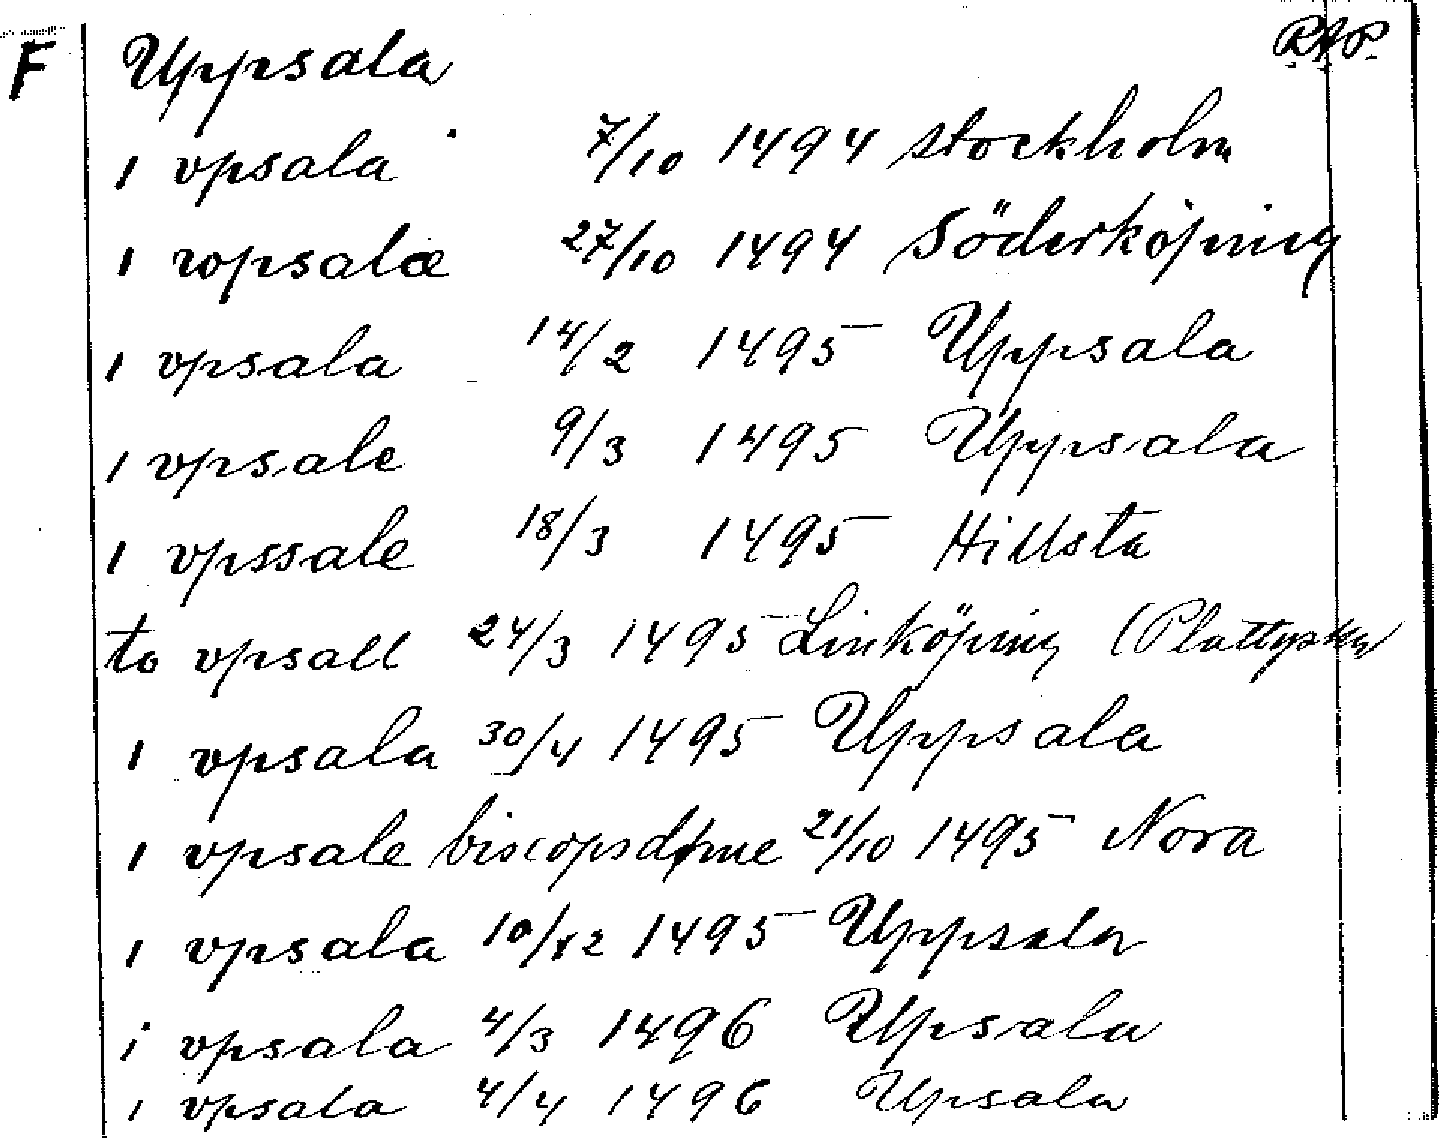 F Uppsala R.A.P.
i vpsala 7/10 1494 Stockholm
i wpsalæ 27/10 1494 Söderköping
i vpsala 14/2 1495 Uppsala
i vpsale 9/3 1495 Uppsala
i vpssale 18/3 1495 Hillsta
to vpsall 24/3 1495 Linköping (Plattyska)
i vpsala 30/4 1495 Uppsala
i vpsale biscopsdøme 21/10 1495 Nora
i vpsala 10/12 1495 Uppsala
i vpsala 4/3 1496 Upsala
i vpsala 4/4 1496 Upsala